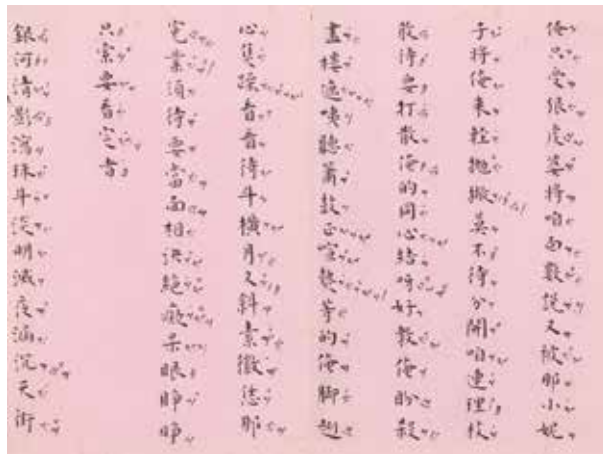 俺只受狠虔婆將咱面數說又被那小妮
子將俺來輕拋撇莫不待分開咱連理枝
敢待要打散俺的同心結呀好教俺盼殺
畫樓遠噢聽簫鼓正喧熱等的俺腳趔
心隻躁看看待斗橫月又斜業徹恁那
宅業須待要當面相決絕癡呆眼睜睜
只索要看定者
銀河清影瀉珠斗淡明滅夜涵沉天街